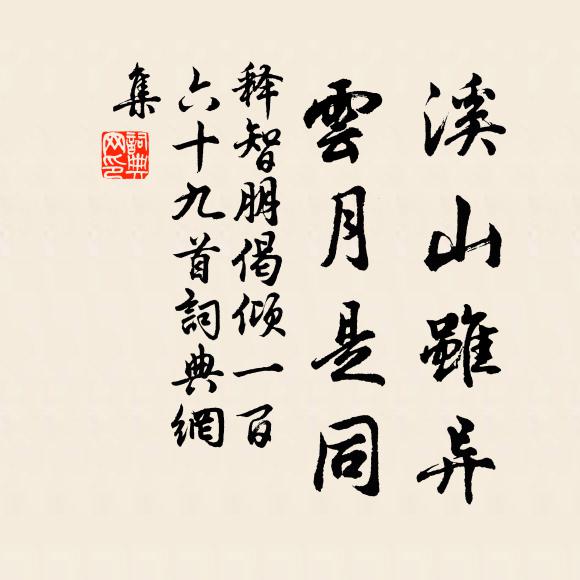 溪山雖异
雲月是同
释智朋偈倾一百
六十九首詞典網
集
詞典
网印